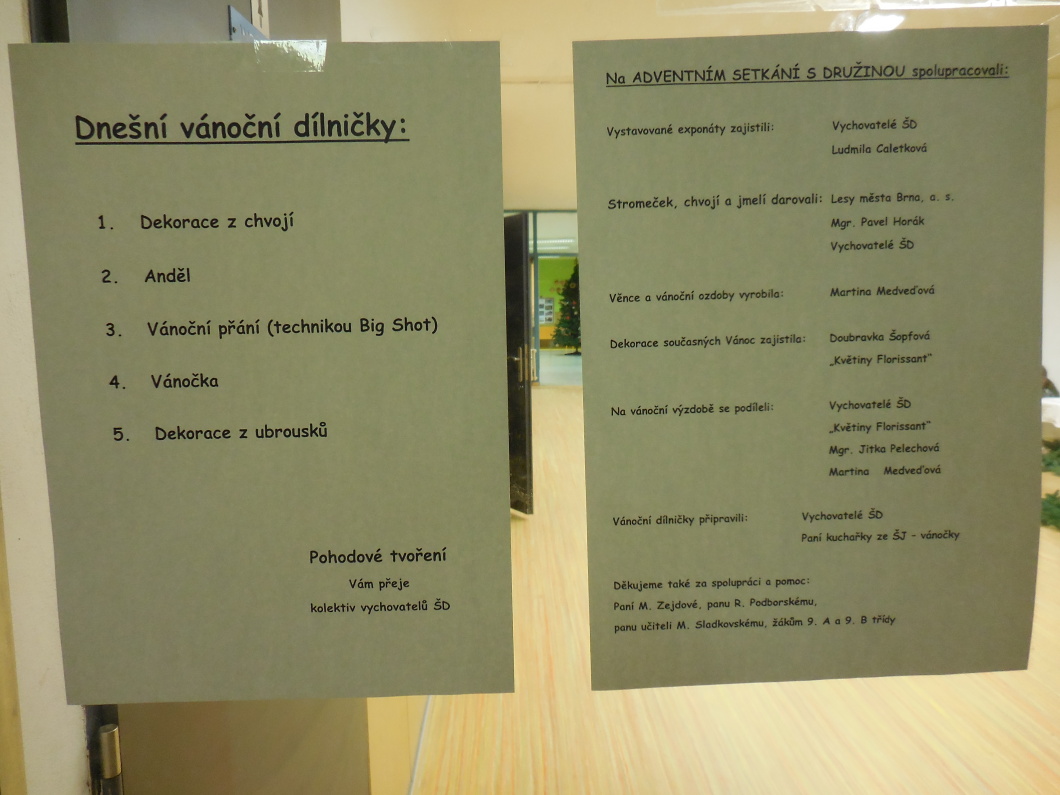 Dnešní vánoční dílničky:
1. Dekorace z chvojí
2. Anděl
3. Vánoční přání (technikou Big Shot)
4. Vánočka
5. Dekorace z ubrousků
Pohodové tvoření
Vám přeje
kolektiv vychovatelů ŠD
Na ADVENTNÍM SETKÁNÍ S DRUŽINOU spolupracovali:
Vystavované exponáty zajistili: Vychovatelé ŠD
Ludmila Caletková
Stromeček, chvojí a jmelí darovali: Lesy města Brna, a. s.
Mgr. Pavel Horák
Vychovatelé ŠD
Věnce a vánoční ozdoby vyrobila: Martina Medveďová
Dekorace současných Vánoc zajistila: Doubravka Šopfová
„Květiny Florissant"
Na vánoční výzdobě se podíleli: Vychovatelé ŠD
„Květiny Florissant"
Mgr. Jitka Pelechová
Martina Medveďová
Vánoční dílničky připravili: Vychovatelé ŠD
Paní kuchařky ze ŠJ - vánočky
Děkujeme také za spolupráci a pomoc:
Paní M. Zejdové, panu R. Podborskému,
panu učiteli M. Sladkovskému, žákům 9. A a 9. B třídy